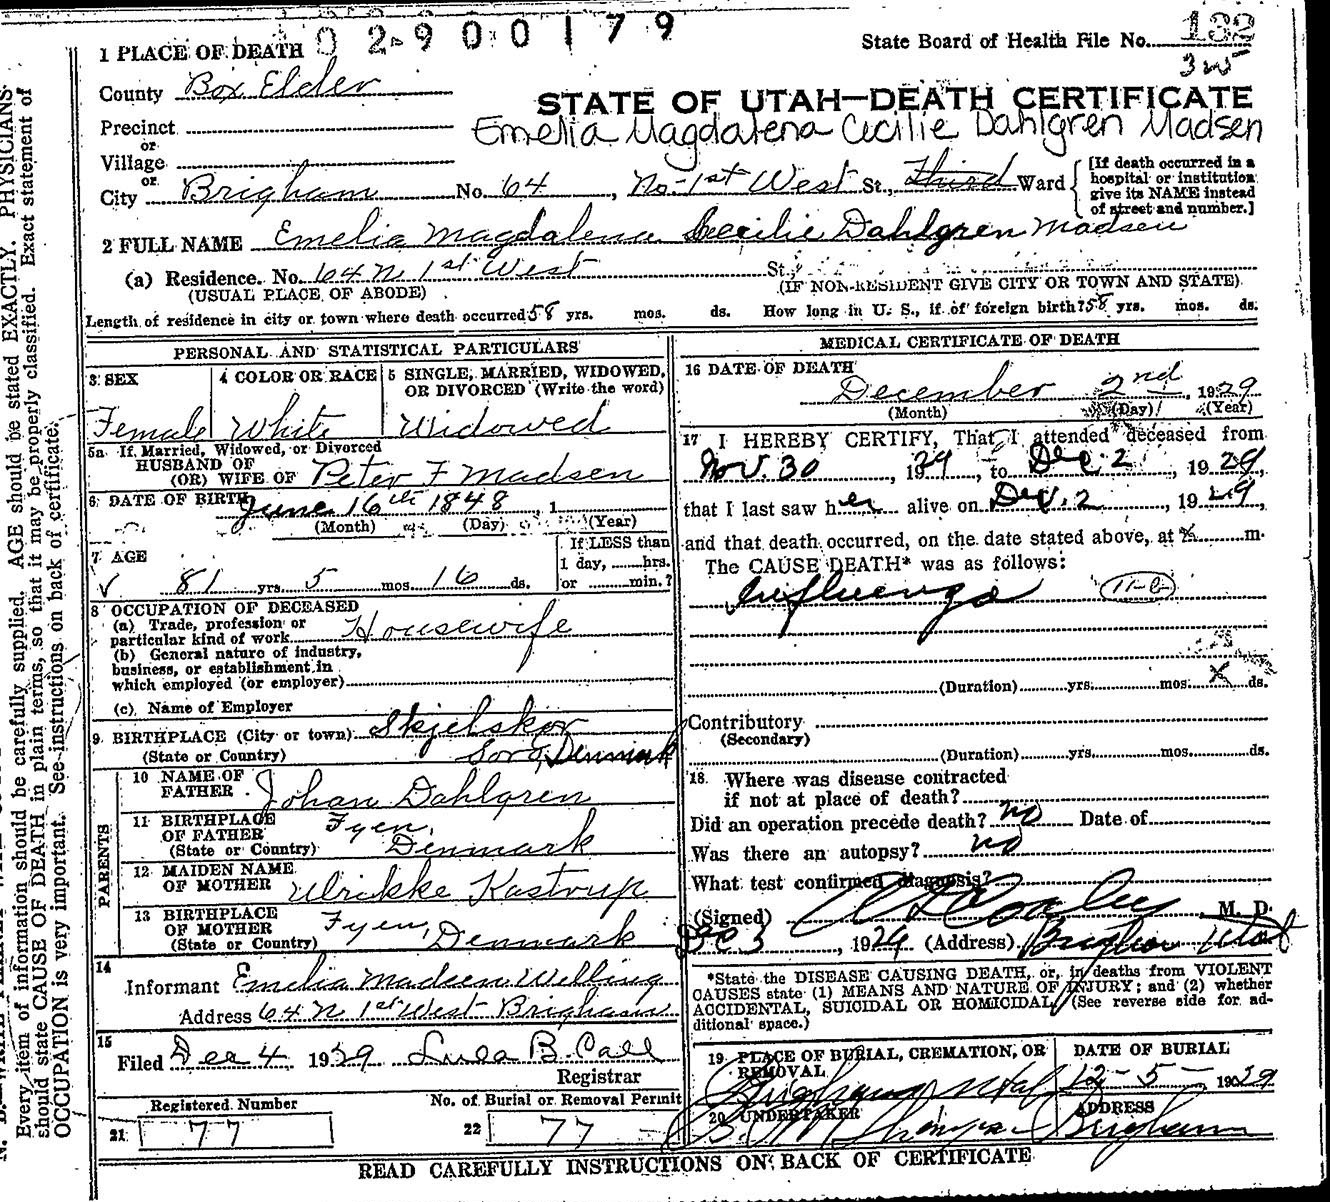 02900179
1 PLACE OF DEATH
State Board of Health File No. 132
County Box Elder
STATE OF UTAH—DEATH CERTIFICATE
Precinct
Emelia Magdalena Cecilie Dahlgren Madsen
or
Village
or
City Brigham No. 64, No-1st West St., Third Ward
[If death occurred in a
hospital or institution
give its NAME instead
of street and number.]
2 FULL NAME Emelia Magdalena Cecilie Dahlgren Madsen
(a) Residence. No. 64 N 1st West St.
(USUAL PLACE OF ABODE)
(IF NON-RESIDENT GIVE CITY OR TOWN AND STATE)
Length of residence in city or town where death occurred 58 yrs. mos. ds. How long in U. S., if of foreign birth? 58 yrs. mos. ds.
PERSONAL AND STATISTICAL PARTICULARS
3 SEX
Female
4 COLOR OR RACE
White
5 SINGLE, MARRIED, WIDOWED,
OR DIVORCED (Write the word)
Widowed
5a If Married, Widowed, or Divorced
HUSBAND OF
(OR) WIFE OF Peter F Madsen
6 DATE OF BIRTH June 16th 1848, 1
(Month) (Day) (Year)
7 AGE
81 yrs. 5 mos. 16 ds.
If LESS than
1 day, hrs.
or min.?
8 OCCUPATION OF DECEASED
(a) Trade, profession or
particular kind of work Housewife
(b) General nature of industry,
business, or establishment in
which employed (or employer)
(c) Name of Employer
9 BIRTHPLACE (City or town) Skjelskor
(State or Country) Soro, Denmark
PARENTS
10 NAME OF
FATHER Johan Dahlgren
11 BIRTHPLACE
OF FATHER
(State or Country) Fyen, Denmark
12 MAIDEN NAME
OF MOTHER Ulrikke Kastrup
13 BIRTHPLACE
OF MOTHER
(State or Country) Fyen, Denmark
14
Informant Emelia Madsen Welling
Address 64 N 1st West Brigham
15
Filed Dec 4 1929 Luea B. Call
Registrar
Registered Number
21 77
No. of Burial or Removal Permit
22 77
MEDICAL CERTIFICATE OF DEATH
16 DATE OF DEATH
December 2nd, 1929
(Month) (Day) (Year)
17 I HEREBY CERTIFY, That I attended deceased from
Nov. 30, 1929, to Dec. 2, 1929,
that I last saw her alive on Dec. 2, 1929,
and that death occurred, on the date stated above, at m.
The CAUSE DEATH* was as follows:
Influenza 11-b
(Duration) yrs. mos. X ds.
Contributory
(Secondary)
(Duration) yrs. mos. ds.
18 Where was disease contracted
if not at place of death?
Did an operation precede death? no Date of
Was there an autopsy? no
What test confirmed diagnosis?
(Signed) M. D.
Dec 3, 1929 (Address) Brigham Utah
*State the DISEASE CAUSING DEATH, or, in deaths from VIOLENT
CAUSES state (1) MEANS AND NATURE OF INJURY; and (2) whether
ACCIDENTAL, SUICIDAL OR HOMICIDAL. (See reverse side for ad-
ditional space.)
19 PLACE OF BURIAL, CREMATION, OR
REMOVAL
Brigham Utah
DATE OF BURIAL
12-5-1929
20 UNDERTAKER
ADDRESS
Brigham
READ CAREFULLY INSTRUCTIONS ON BACK OF CERTIFICATE
Every item of information should be carefully supplied. AGE should be stated EXACTLY. PHYSICIANS
should state CAUSE OF DEATH in plain terms, so that it may be properly classified. Exact statement of
OCCUPATION is very important. See instructions on back of certificate.